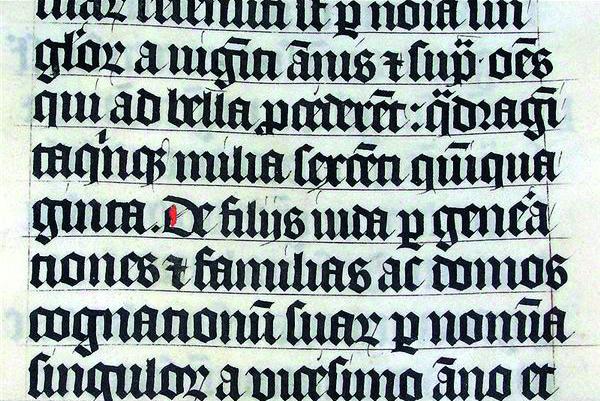 suaꝝ recensiti st̄ ꝑ noīa sin
gl̄oꝝ a uigīti ānis ⁊ sup̄ · oēs
qui ad bella ꝓcederēt : q̈dragī
taqinqꝫ milia sexcēti qūiqua
ginta. De filijs iuda ꝑ gene͛a
tiones ⁊ familias ac domos
cognationū suaꝝ ꝑ nomīa
singuloꝝ a vicesimo āno et